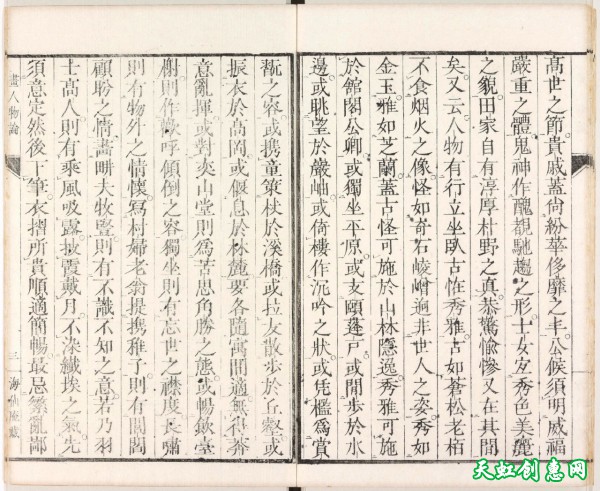 髙世之節貴戚蓋尙紛華侈靡之丰公候須明威福
嚴重之體鬼神作醜馳趡之形士女宐秀色美麗
之貌田家自有淳厚朴野之真恭驁愉慘又在其間
矣又云人物有行立坐臥古怪秀雅古如蒼松老栢
不食烟火之像怪如奇石崚嶒迥非世人之姿秀如
金玉雅如芝蘭蓋古怪可施於山林隱逸秀雅可施
於館閣公卿或獨坐平原或支頤蓬戸或閒步於水
邊或眺望於巖岫或倚樓作沉吟之狀或凭檻爲賞
翫之容或携童策杖於溪橋或拉友散歩於丘壑或
振衣於高岡或偃息於林麓要各隨寓閒適無令莽
意亂揮或對奕山堂則爲苦思角勝之態或暢飲臺
榭則作歡呼傾倒之容獨坐則有忘世之襟度長嘯
則有物外之情懷寫村婦老翁提携稚子則有閭閻
顧盼之情畵畊夫牧豎則有不識不知之意若乃羽
士髙人則有乘風吸露披霞戴月不染纎埃之氣先
須意定然後下筆衣摺所貴順適簡暢最忌繁亂鄙
畫人物論
三
海仙藏
天虹创惠网